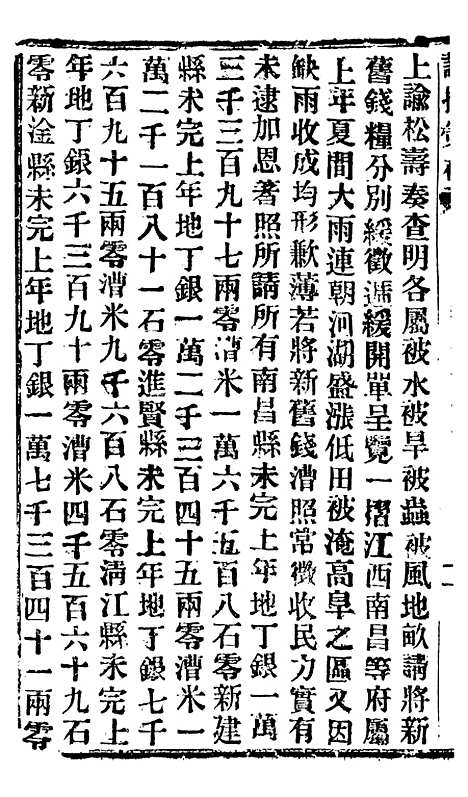 上諭松壽奏查明各屬被水被旱被蟲被風地畝請將新
舊錢糧分別緩徵遞緩開單呈覽一摺江西南昌等府屬
上年夏間大雨連朝河湖盛漲低田被淹高阜之區又因
缺雨收成均形歉薄若將新舊錢漕照常徵收民力實有
未逮加恩著照所請所有南昌縣未完上年地丁銀一萬
三千三百九十七兩零漕米一萬六千五百八石零新建
縣未完上年地丁銀一萬二千三百四十五兩零漕米一
萬二千一百八十一石零進賢縣未完上年地丁銀七千
六百九十五兩零漕米九千六百八石零清江縣未完上
年地丁銀六千三百九十兩零漕米四千五百六十九石
零新淦縣未完上年地丁銀一萬七千三百四十一兩零